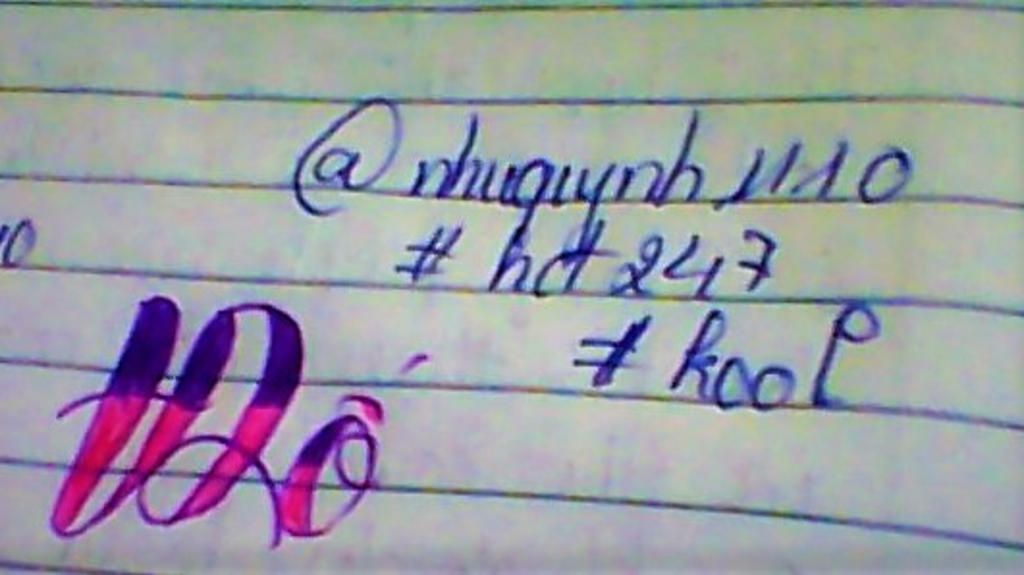 @nhuquynh1110
# hd247
# kool